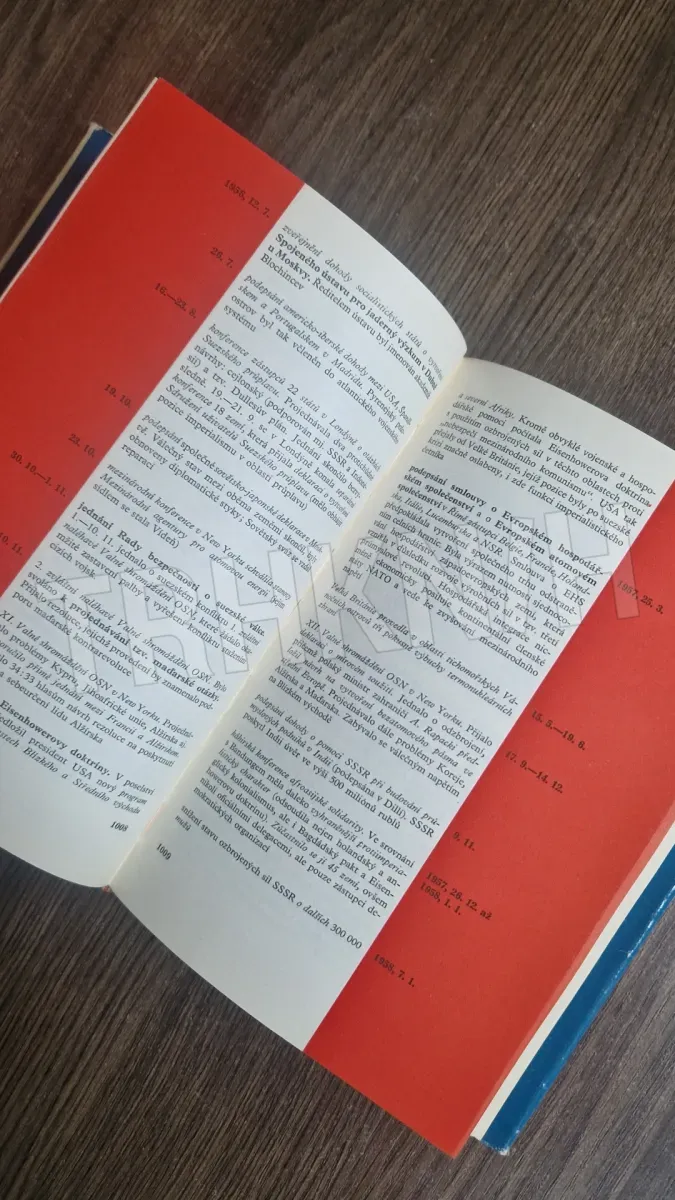 1956, 12. 7.
26. 7.
16.—23. 8.
19. 10.
23. 10.
30. 10.—1. 11.
10. 11.
zveřejnění dohody socialistických států o
Spojeného ústavu pro jaderný výzkum v
u Moskvy. Ředitelem ústavu byl jmenován
Blochincev
podepsání americko-iberské dohody mezi USA,
skem a Portugalskem v Madridu. Pyrenejský
ostrov byl tak včleněn do atlantického
systému
konference zástupců 22 států v Londýně o otázce
Suezského průplavu. Projednávala dva protichůdné
návrhy: cejlonský (podporován mj. SSSR a
sií) a tzv. Dullesův plán. Jednání skončilo
sledně. 19.—21. 9. se v Londýně konala
konference 18 zemí, která přijala deklaraci o vytvoření
Sdružení uživatelů Suezského průplavu (mělo
pozice imperialismu v oblasti průplavu)
podepsání společné sovětsko-japonské deklarace v
vě. Válečný stav mezi oběma zeměmi skončil,
obnoveny diplomatické styky; Sovětský svaz se vzdal
reparací
mezinárodní konference v New Yorku schválila
Mezinárodní agentury pro atomovou energii
sídlem se stala Vídeň)
jednání Rady bezpečnosti o suezské válce.
1.—10. 11. jednalo o suezském konfliktu 1. zvláštní
Valné shromáždění OSN, které žádalo
zastavení palby a vyřešení konfliktu stažením
cizích vojsk
2. zvláštní naléhavé Valné shromáždění OSN. Bylo
svoláno k projednávání tzv. maďarské otázky.
Přijalo rezoluce, jejichž provedení by znamenalo
poru maďarské kontrarevoluce
XI. Valné shromáždění OSN v New Yorku.
lo problémy Kypru, Jihoafrické unie, Alžírska
přímé jednání mezi Francií a Alžírskem
lo 34:33 hlasům návrh rezoluce na poskytnutí
a sebeurčení lidu Alžírska
Eisenhowerovy doktríny. V poselství
president USA nový program
Blízkého a Středního východu
1008
a severní Afriky. Kromě obvyklé vojenské a hospo-
dářské pomoci počítala Eisenhowerova doktrína
s použitím ozbrojených sil v těchto oblastech proti
„nebezpečí mezinárodního komunismu“. USA tak
přejaly od Velké Británie, jejíž pozice byly po suezské
krizi značně oslabeny, i zde funkci imperialistického
četníka
podepsání smlouvy o Evropském hospodář-
ském společenství a o Evropském atomovém
společenství v Římě zástupci Belgie, Francie, Holand-
ska, Itálie, Lucemburska a NSR. Smlouva o EHS
předpokládala vytvoření společného trhu, odstranění
celních hranic. Byla výrazem nutnosti sjednoco-
vání hospodářství západoevropských zemí, která
vzešla v důsledku rozvoje výrobních sil v tzv. třetí
průmyslové revoluci. Hospodářská integrace nic-
ekonomicky posiluje kontinentální členské
NATO a vede ke zvyšování mezinárodního
napětí
Velká Británie provedla v oblasti tichomořských Vá-
nočních ostrovů tři pokusné výbuchy termonukleárních
XII. Valné shromáždění OSN v New Yorku. Přijalo
o mírovém soužití. Jednalo o odzbrojení,
přičemž polský ministr zahraničí A. Rapacki před-
na vytvoření bezatomového pásma ve
střední Evropě. Projednávalo dále problémy Koreje,
Alžírska a Maďarska. Zabývalo se válečným napětím
na Blízkém východě
podepsána dohody o pomoci SSSR při budování prů-
myslových podniků v Indii (podepsána v Dillí). SSSR
poskytl Indii úvěr ve výši 500 miliónů rublů
káhirská konference afroasijské solidarity. Ve srovnání
s Bandungem měla daleko vyhraněnější protiimperia-
listický charakter (odsoudila nejen holandský a an-
glický kolonialismus, ale i Bagdádský pakt a Eisen-
howerovu doktrínu). Zúčastnilo se jí 45 zemí, ovšem
nikoli oficiálními delegacemi, ale pouze zástupci de-
mokratických organizací
snížení stavu ozbrojených sil SSSR o dalších 300 000
mužů
1009
1957, 25. 3.
15. 5.—19. 6.
17. 9.—14. 12.
9. 11.
1957, 26. 12. až
1958, 1. 1.
1958, 7. 1.